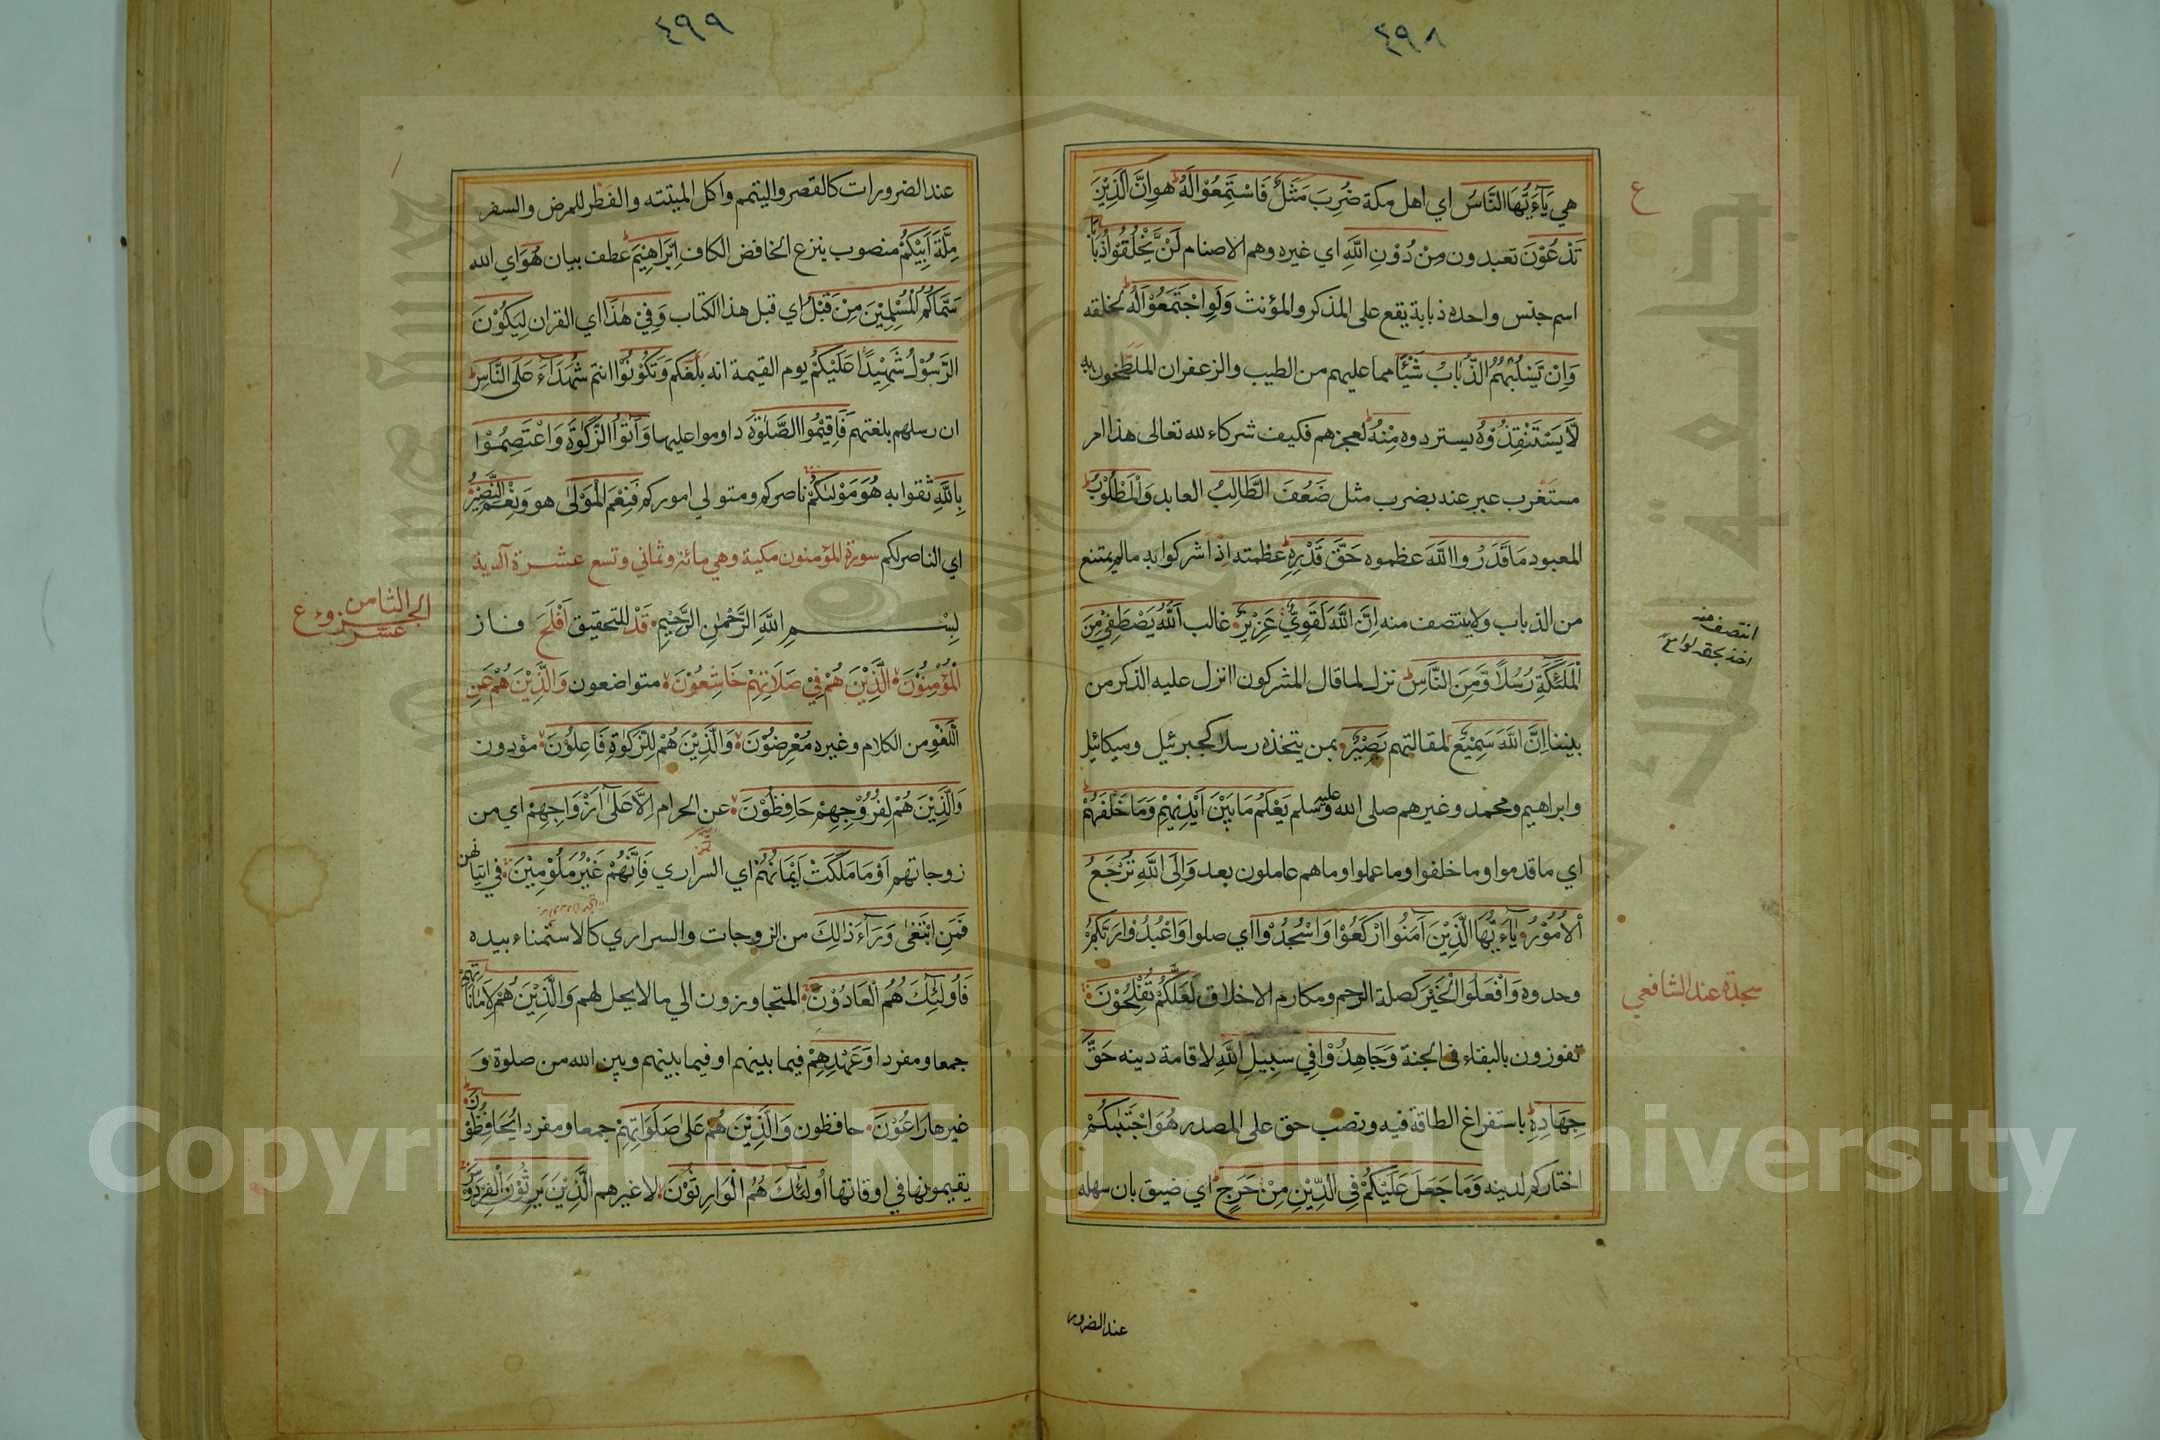 ٤٩٨
هي يَآءَيُّهَا النَّاسُ اي اهل مكة ضُرِبَ مَثَلٌ فَاسْتَمِعُوْا لَهُ هو اِنَّ الَّذِيْنَ
تَدْعُوْنَ تعبدون مِنْ دُوْنِ اللّٰهِ اي غيره وهم الاصنام لَنْ يَّخْلُقُوْا ذُبَابًا
اسم جنس واحده ذبابة يقع على المذكر والمؤنث وَلَوِ اجْتَمَعُوْا لَهُ لخلقه
وَاِنْ يَسْلُبْهُمُ الذُّبَابُ شَيْئًا مما عليهم من الطيب والزعفران الملطخون به
لَّا يَسْتَنْقِذُوْهُ يستردوه مِنْهُ لعجزهم فكيف شركاء لله تعالى هذا امر
مستغرب عبر عنه بضرب مثل ضَعُفَ الطَّالِبُ العابد وَالْمَطْلُوْبُ
المعبود مَا قَدَرُوا اللّٰهَ عظموه حَقَّ قَدْرِهِ عظمته اذا اشركوا به ما لم يمتنع
من الذباب ولا ينتصف منه اِنَّ اللّٰهَ لَقَوِيٌّ عَزِيْزٌ غالب اَللّٰهُ يَصْطَفِيْ مِنَ
الْمَلٰئِكَةِ رُسُلًا وَّمِنَ النَّاسِ نزل لما قال المشركون اانزل عليه الذكر من
بيننا اِنَّ اللّٰهَ سَمِيْعٌ لمقالتهم بَصِيْرٌ بمن يتخذه رسلا كجبرئيل وميكائيل
وابراهيم ومحمد وغيرهم صلى الله عليه وسلم يَعْلَمُ مَا بَيْنَ اَيْدِيْهِمْ وَمَا خَلْفَهُمْ
اي ما قدموا وما خلفوا وما عملوا وما هم عاملون بعد وَاِلَى اللّٰهِ تُرْجَعُ
الْاُمُوْرُ يٰآءَيُّهَا الَّذِيْنَ آمَنُوا ارْكَعُوْا وَاسْجُدُوْا اي صلوا وَاعْبُدُوْا رَبَّكُمْ
وحدوه وَافْعَلُوا الْخَيْرَ كصلة الرحم ومكارم الاخلاق لَعَلَّكُمْ تُفْلِحُوْنَ
تفوزون بالبقاء في الجنة وَجَاهِدُوْا فِي سَبِيْلِ اللّٰهِ لاقامة دينه حَقَّ
جِهَادِهِ باستفراغ الطاقة فيه ونصب حق على المصدر هُوَ اجْتَبٰىكُمْ
اختاركم لدينه وَمَا جَعَلَ عَلَيْكُمْ فِي الدِّيْنِ مِنْ حَرَجٍ اي ضيق بان سهله
عند الضرور
ع
انتصف منه
سجدة عند الشافعي
٤٩٩
عند الضرورات كالقصر والتيمم واكل الميتة والفطر للمرض والسفر
مِلَّةَ اَبِيْكُمْ منصوب بنزع الخافض الكاف اِبْرَاهِيْمَ عطف بيان هُوَ اي الله
سَمّٰىكُمُ الْمُسْلِمِيْنَ مِنْ قَبْلُ اي قبل هذا الكتاب وَفِيْ هٰذَا اي القران لِيَكُوْنَ
الرَّسُوْلُ شَهِيْدًا عَلَيْكُمْ يوم القيمة انه بلغكم وَتَكُوْنُوْا انتم شُهَدَآءَ عَلَى النَّاسِ
ان رسلهم بلغتهم فَاَقِيْمُوا الصَّلٰوةَ داوموا عليها وَآتُوا الزَّكٰوةَ وَاعْتَصِمُوْا
بِاللّٰهِ ثقوا به هُوَ مَوْلٰىكُمْ ناصركم ومتولي اموركم فَنِعْمَ الْمَوْلٰى هو وَنِعْمَ النَّصِيْرُ
اي الناصر لكم سورة المؤمنون مكية وهي مائة وثماني وتسع عشرة آية
بِسْمِ اللّٰهِ الرَّحْمٰنِ الرَّحِيْمِ قَدْ للتحقيق اَفْلَحَ فاز
الْمُؤْمِنُوْنَ الَّذِيْنَ هُمْ فِيْ صَلَاتِهِمْ خَاشِعُوْنَ متواضعون وَالَّذِيْنَ هُمْ عَنِ
اللَّغْوِ من الكلام وغيره مُعْرِضُوْنَ وَالَّذِيْنَ هُمْ لِلزَّكٰوةِ فَاعِلُوْنَ مؤدون
وَالَّذِيْنَ هُمْ لِفُرُوْجِهِمْ حَافِظُوْنَ عن الحرام اِلَّا عَلٰى اَزْوَاجِهِمْ اي من
زوجاتهم اَوْ مَا مَلَكَتْ اَيْمَانُهُمْ اي السراري فَاِنَّهُمْ غَيْرُ مَلُوْمِيْنَ في اتيانهن
فَمَنِ ابْتَغٰى وَرَآءَ ذٰلِكَ من الزوجات والسراري كالاستمناء بيده
فَاُولٰئِكَ هُمُ الْعَادُوْنَ المتجاوزون الي ما لا يحل لهم وَالَّذِيْنَ هُمْ لِاَمَانَاتِهِمْ
جمعا ومفردا وَعَهْدِهِمْ فيما بينهم او فيما بينهم وبين الله من صلوة و
غيرها رَاعُوْنَ حافظون وَالَّذِيْنَ هُمْ عَلٰى صَلَوَاتِهِمْ جمعا ومفردا يُحَافِظُوْنَ
يقيمونها في اوقاتها اُولٰئِكَ هُمُ الْوَارِثُوْنَ لا غيرهم الَّذِيْنَ يَرِثُوْنَ الْفِرْدَوْسَ
الجزؤ الثامن عشر
ع
Copyright (c) King Saud University
جامعة الملك سعود
1957